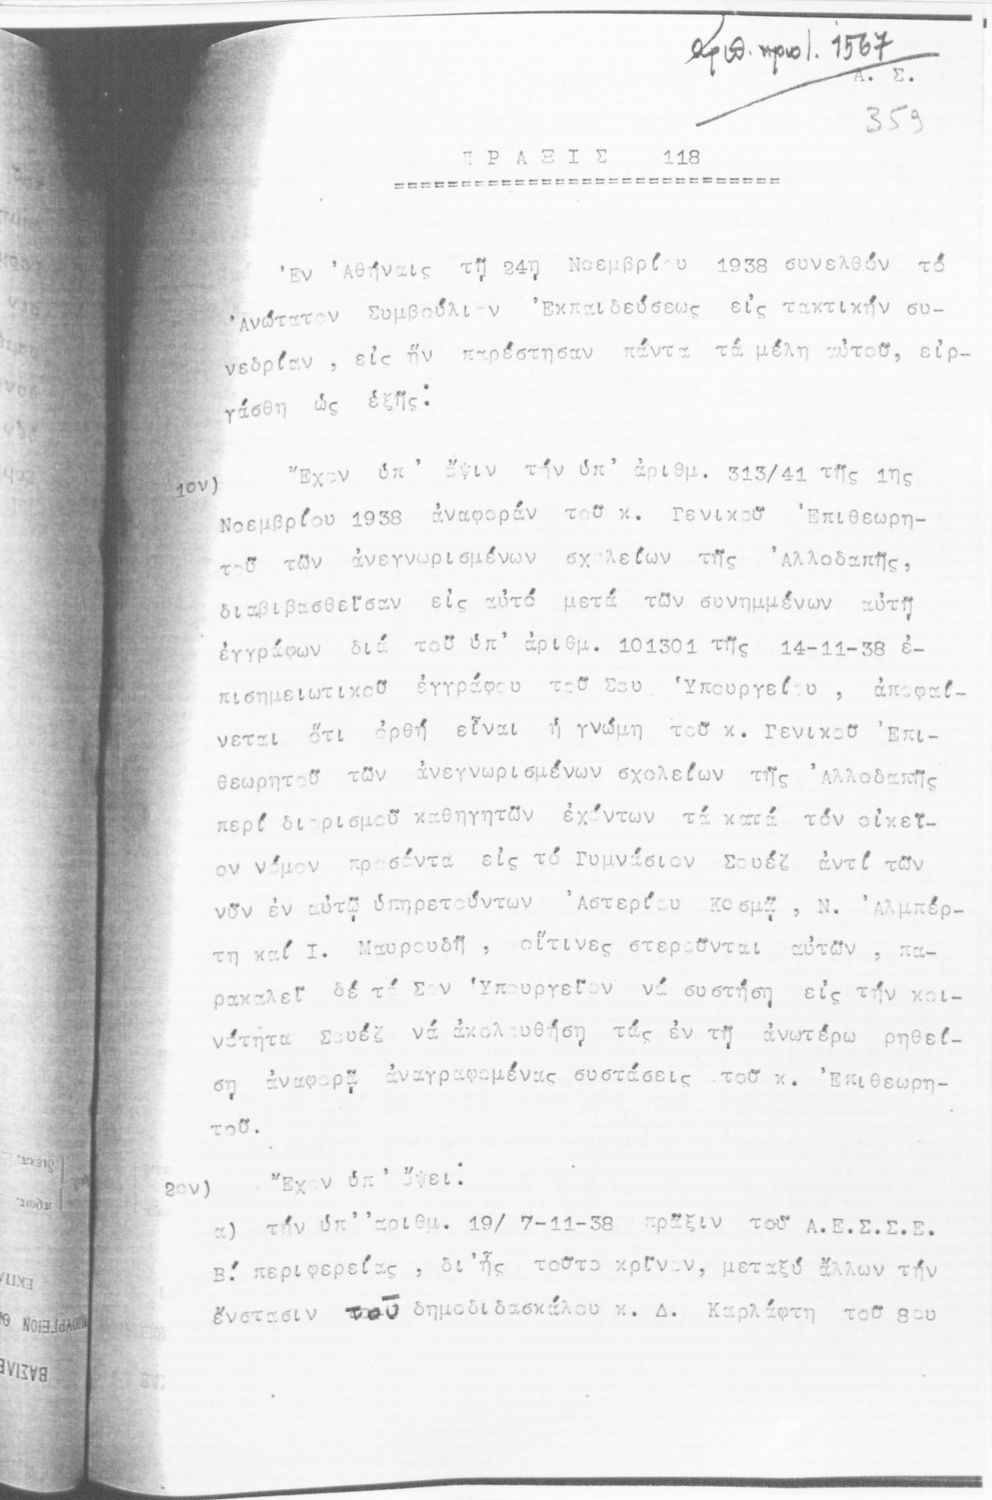 ἀριθ. πρωτ. 1567
Α. Σ.
359
ΠΡΑΞΙΣ 118
Ἐν Ἀθήναις τῇ 24η Νοεμβρίου 1938 συνελθόν τό
Ἀνώτατον Συμβούλιον Ἐκπαιδεύσεως εἰς τακτικήν συ-
νεδρίαν , εἰς ἥν παρέστησαν πάντα τά μέλη αὐτοῦ, εἰρ-
γάσθη ὡς ἑξῆς:
1ον) Ἔχον ὑπ' ὄψιν τήν ὑπ' ἀριθμ. 313/41 τῆς 1ης
Νοεμβρίου 1938 ἀναφοράν τοῦ κ. Γενικοῦ Ἐπιθεωρη-
τοῦ τῶν ἀνεγνωρισμένων σχολείων τῆς Ἀλλοδαπῆς,
διαβιβασθεῖσαν εἰς αὐτό μετά τῶν συνημμένων αὐτῇ
ἐγγράφων διά τοῦ ὑπ' ἀριθμ. 101301 τῆς 14-11-38 ἐ-
πισημειωτικοῦ ἐγγράφου τοῦ Σου Ὑπουργείου , ἀποφαί-
νεται ὅτι ὀρθή εἶναι ἡ γνώμη τοῦ κ. Γενικοῦ Ἐπι-
θεωρητοῦ τῶν ἀνεγνωρισμένων σχολείων τῆς Ἀλλοδαπῆς
περί διορισμοῦ καθηγητῶν ἐχόντων τά κατά τόν οἰκεῖ-
ον νόμον προσόντα εἰς τό Γυμνάσιον Σουέζ ἀντί τῶν
νῦν ἐν αὐτῷ ὑπηρετούντων Ἀστερίου Κοσμᾷ , Ν. Ἀλμπέρ-
τη καί Ι. Μαυρουδῆ , οἵτινες στεροῦνται αὐτῶν , πα-
ρακαλεῖ δέ τό Σον Ὑπουργεῖον νά συστήσῃ εἰς τήν κοι-
νότητα Σουέζ νά ἀκολουθήσῃ τάς ἐν τῇ ἀνωτέρω ρηθεί-
σῃ ἀναφορᾷ ἀναγραφομένας συστάσεις τοῦ κ. Ἐπιθεωρη-
τοῦ.
2ον) Ἔχον ὑπ' ὄψει:
α) τήν ὑπ''αριθμ. 19/ 7-11-38 πρᾶξιν τοῦ Α.Ε.Σ.Σ.Ε.
Β.' περιφερείας , δι'ἧς τοῦτο κρῖνον, μεταξύ ἄλλων τήν
ἔνστασιν τοῦ δημοδιδασκάλου κ. Δ. Καρλάφτη τοῦ 8ου